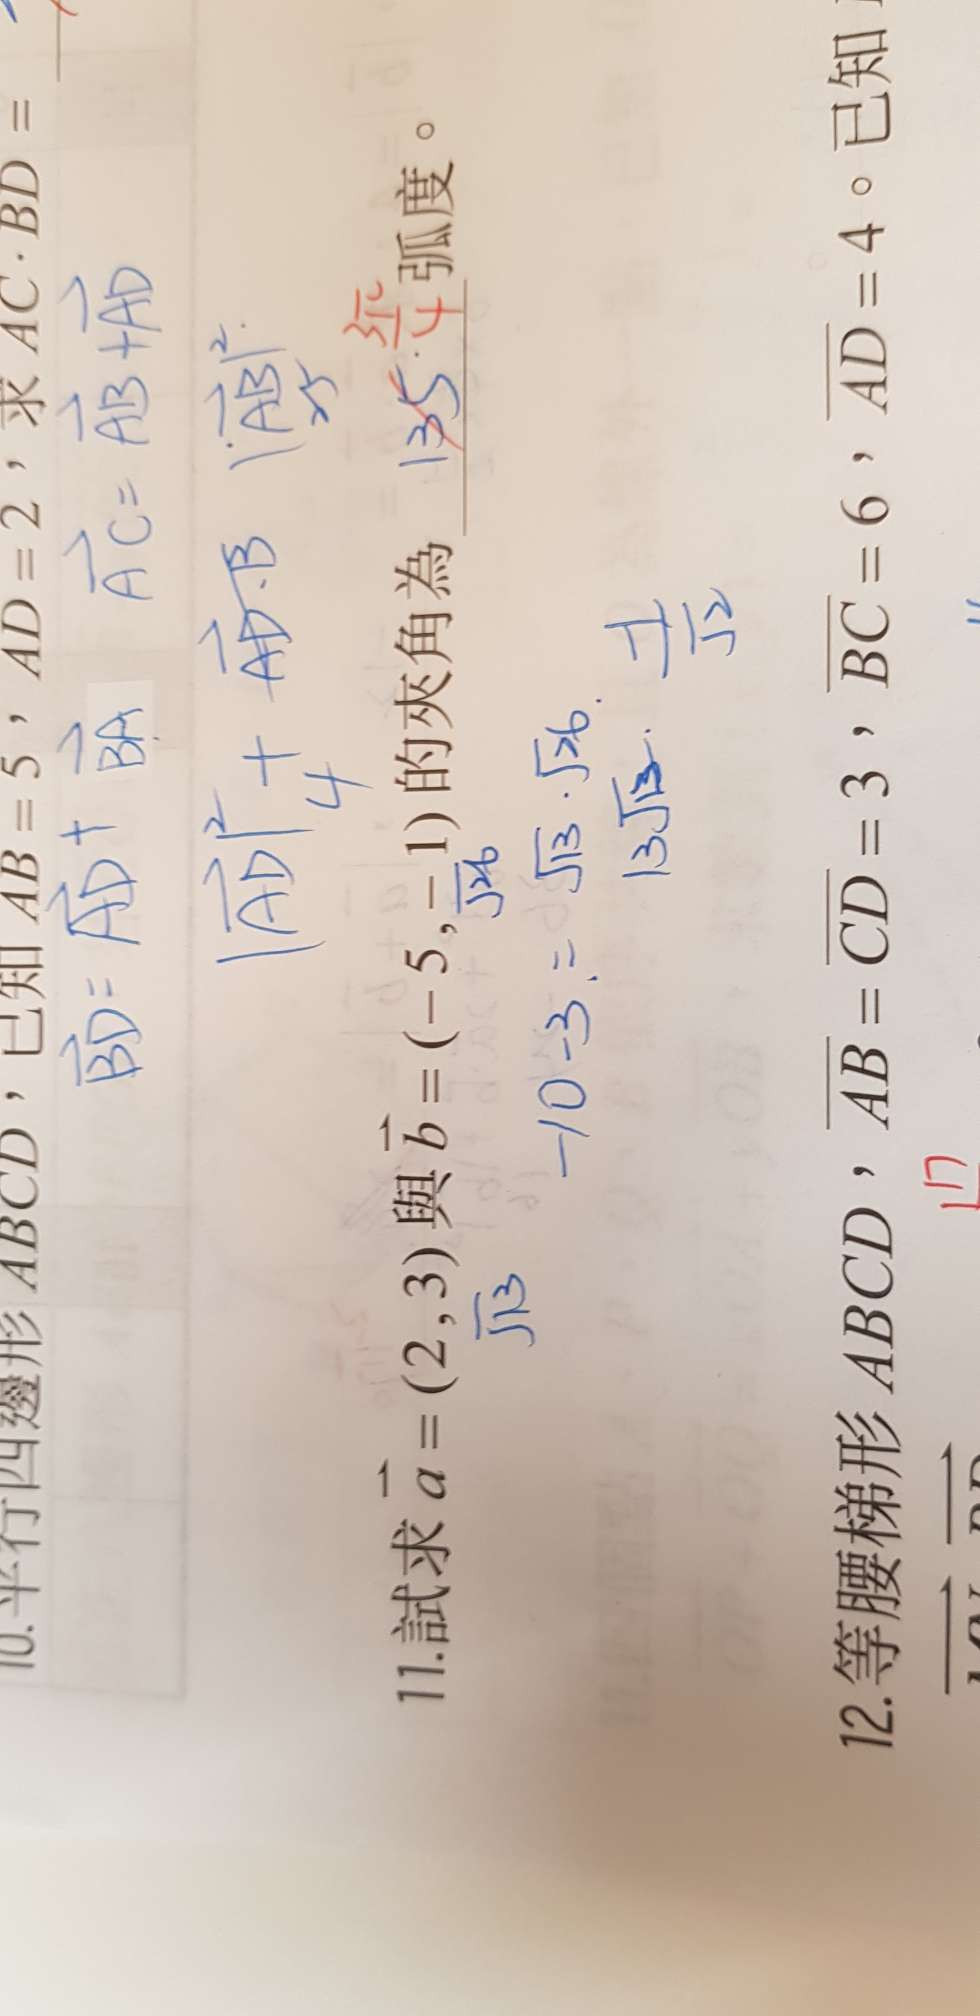 10.平行四邊形 ABCD，已知 AB = 5，AD = 2，求 AC · BD =
BD = AD + BA AC = AB + AD
|AD|² + AD·B |AB|²
4 25
11.試求 a = (2 , 3) 與 b = (− 5 , − 1) 的夾角為 135 3π/4 弧度。
√13 √26
-10-3 = √13 · √26
13√13 -1/√2
12.等腰梯形 ABCD，AB = CD = 3，BC = 6，AD = 4。已知